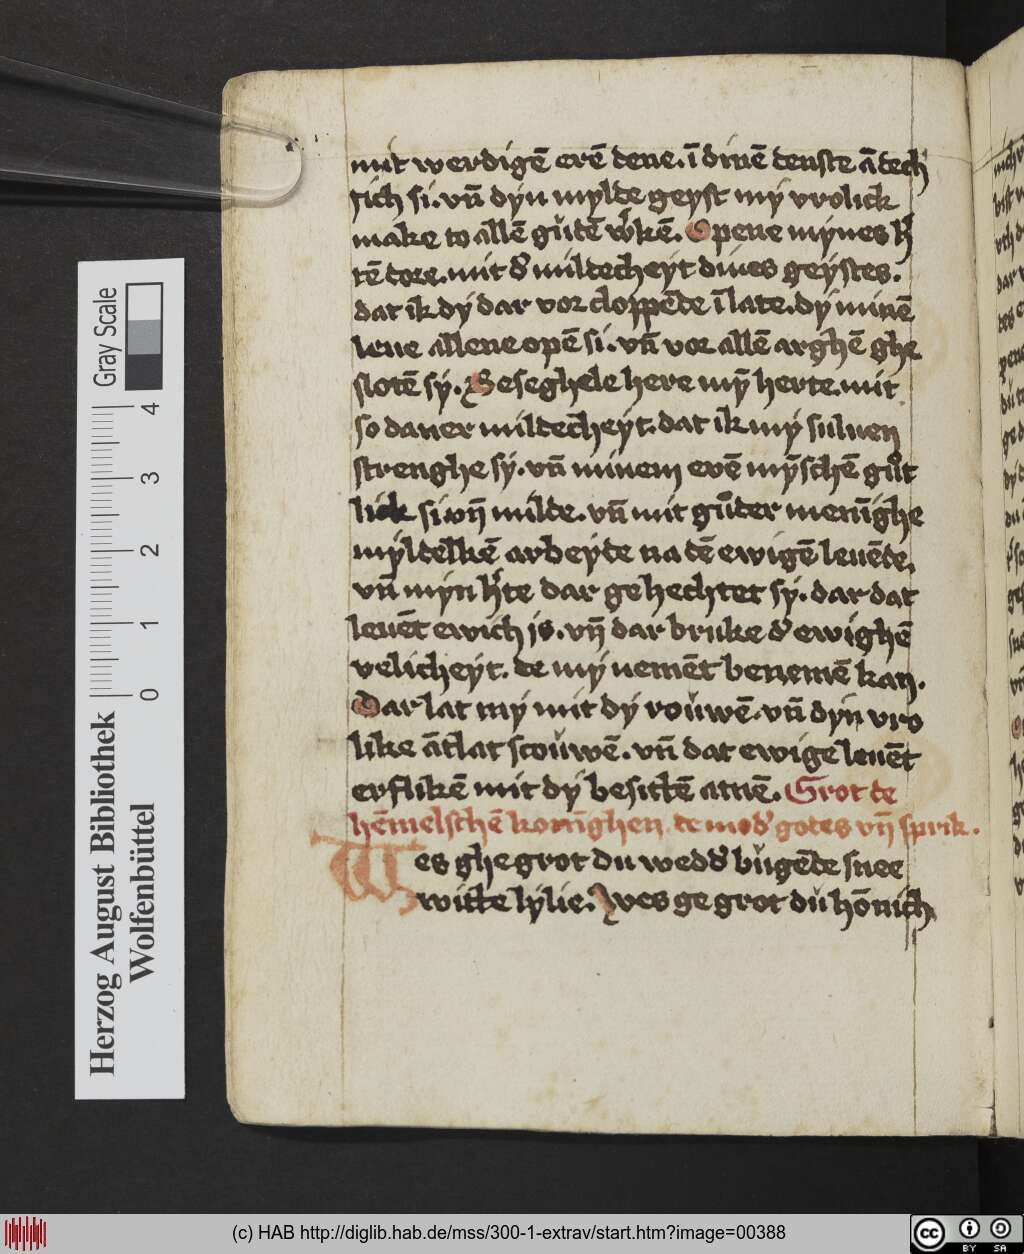 mit werdigē erē dene. ī dinē denste ādech
sich si. vn̄ dyn mylde geyst my vrolick
make to allē gůtē w̓kē. Opene mynes h̓
tē dore. mit d̓ mildecheyt dines geystes.
dat ik dy dar vor cloppēde īlate. dy minē
leue allene opē si. vn̄ vor allē arghē ghe
slotē sy. Beseghele here mȳ herte. mit
so daner mildecheyt. dat ik my suluen
strenghe sy. vn̄ minem euē mȳschē gůt
lick si. vn̄ milde. vn̄ mit gůder menīghe
myldelkē arbeyde na dē ewigē leuēde.
vn̄ myn h̓te dar gehechtet sy. dar dat
leuēt ewich is. vn̄ dar bruke d̓ ewighē
velicheyt. de my nemēt benemē kan.
Dar lat my mit dy roůwē. vn̄ dyn vro
like ātlat scoůwē. vn̄ dat ewige leuēt
erflikē mit dy besittē amē. Grot de
hēmelschē konīghen. de mod̓ gotes vn̄ sprik.
Wes ghegrot du wedd̓ bůgēde snee
witte lylie. Wes gegrot dů hōnich
Herzog August Bibliothek
Wolfenbüttel
0 1 2 3 4
Gray Scale
(c) HAB http://diglib.hab.de/mss/300-1-extrav/start.htm?image=00388
cc BY SA